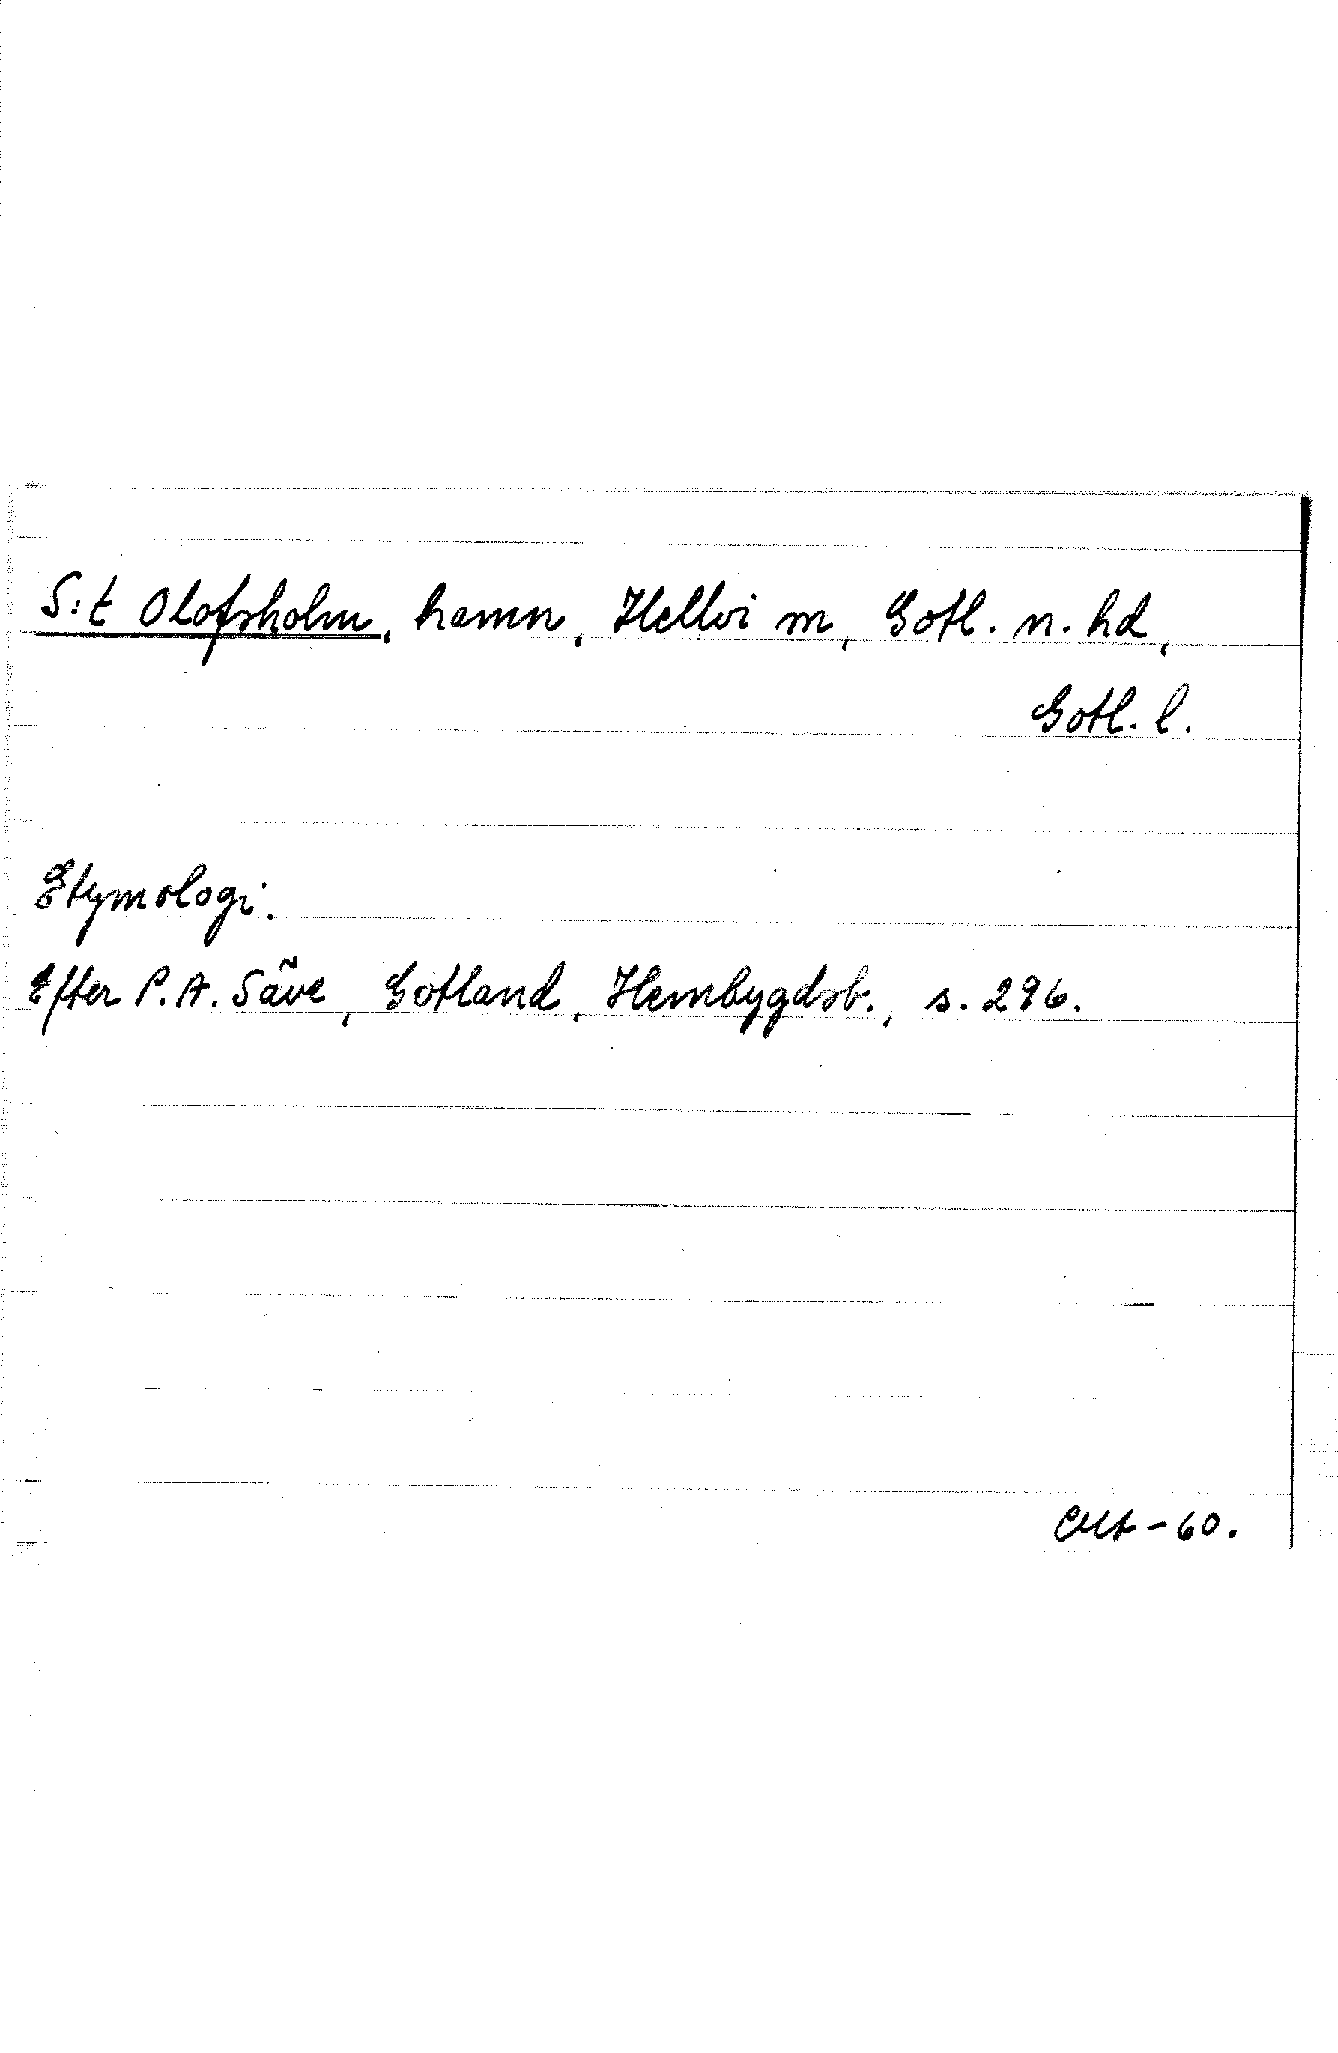 S:t Olofsholm, hamn, Hellvi sn, Gotl. n. hd,
Gotl. l.
Etymologi.
Efter P. A. Säve, Gotland, Hembygdsb., s. 296.
-60.